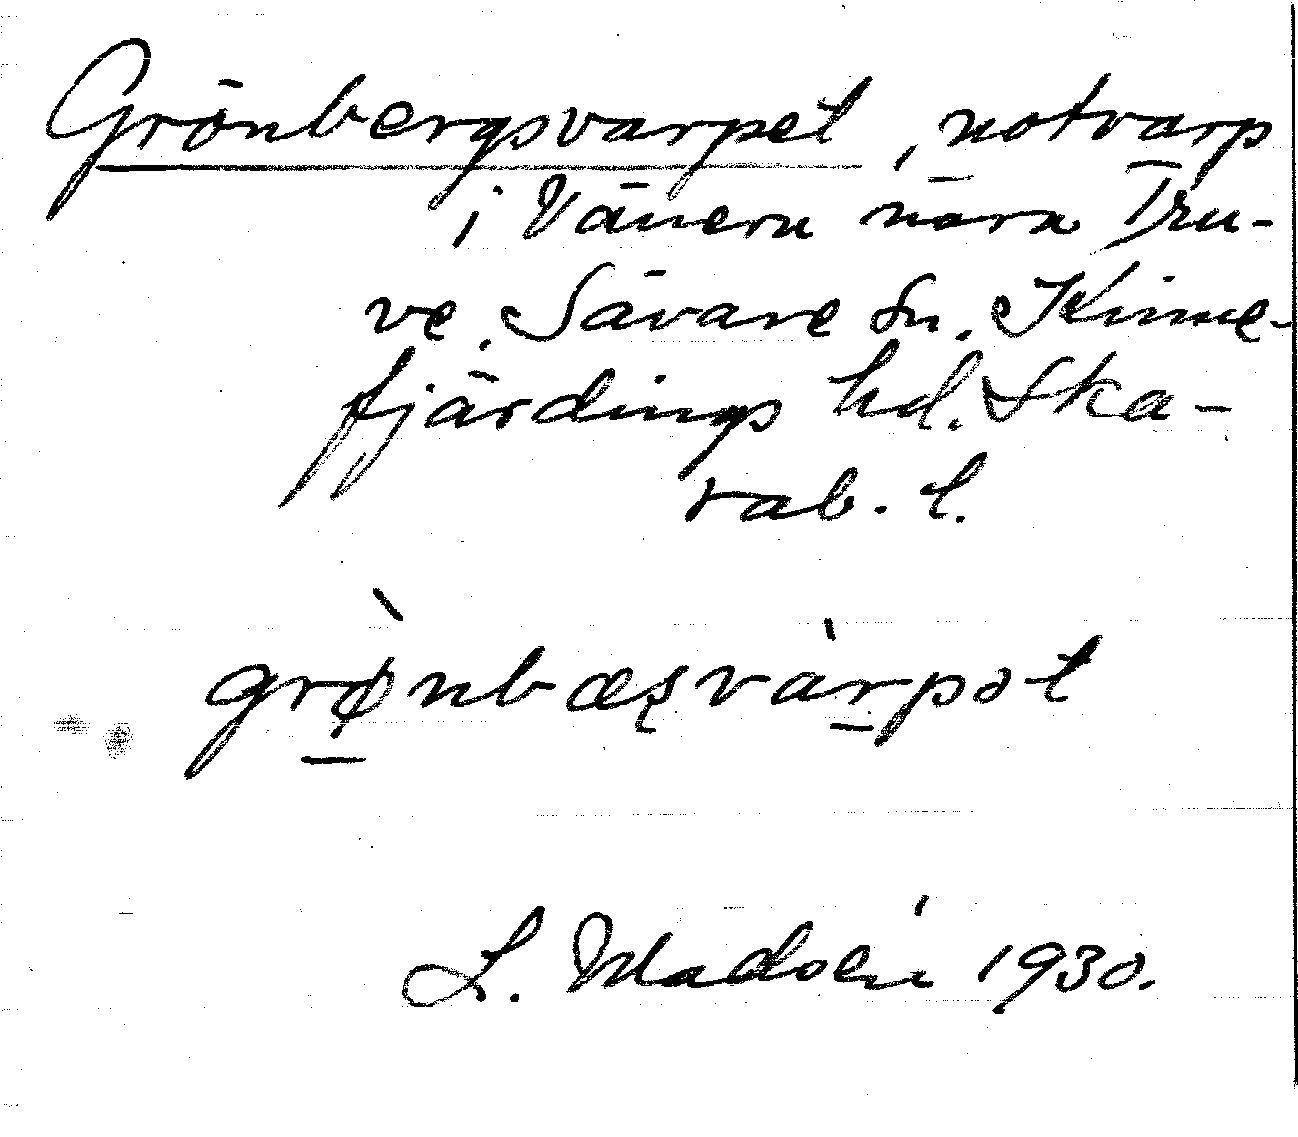 Grönbergsvarpet, notvarp
i Vänern nära Tru-
ve. Sävare sn. Kinne-
fjärdings hd. Ska-
rab. l.
grø̀nbæşvàrpət
L. Madsén 1930.